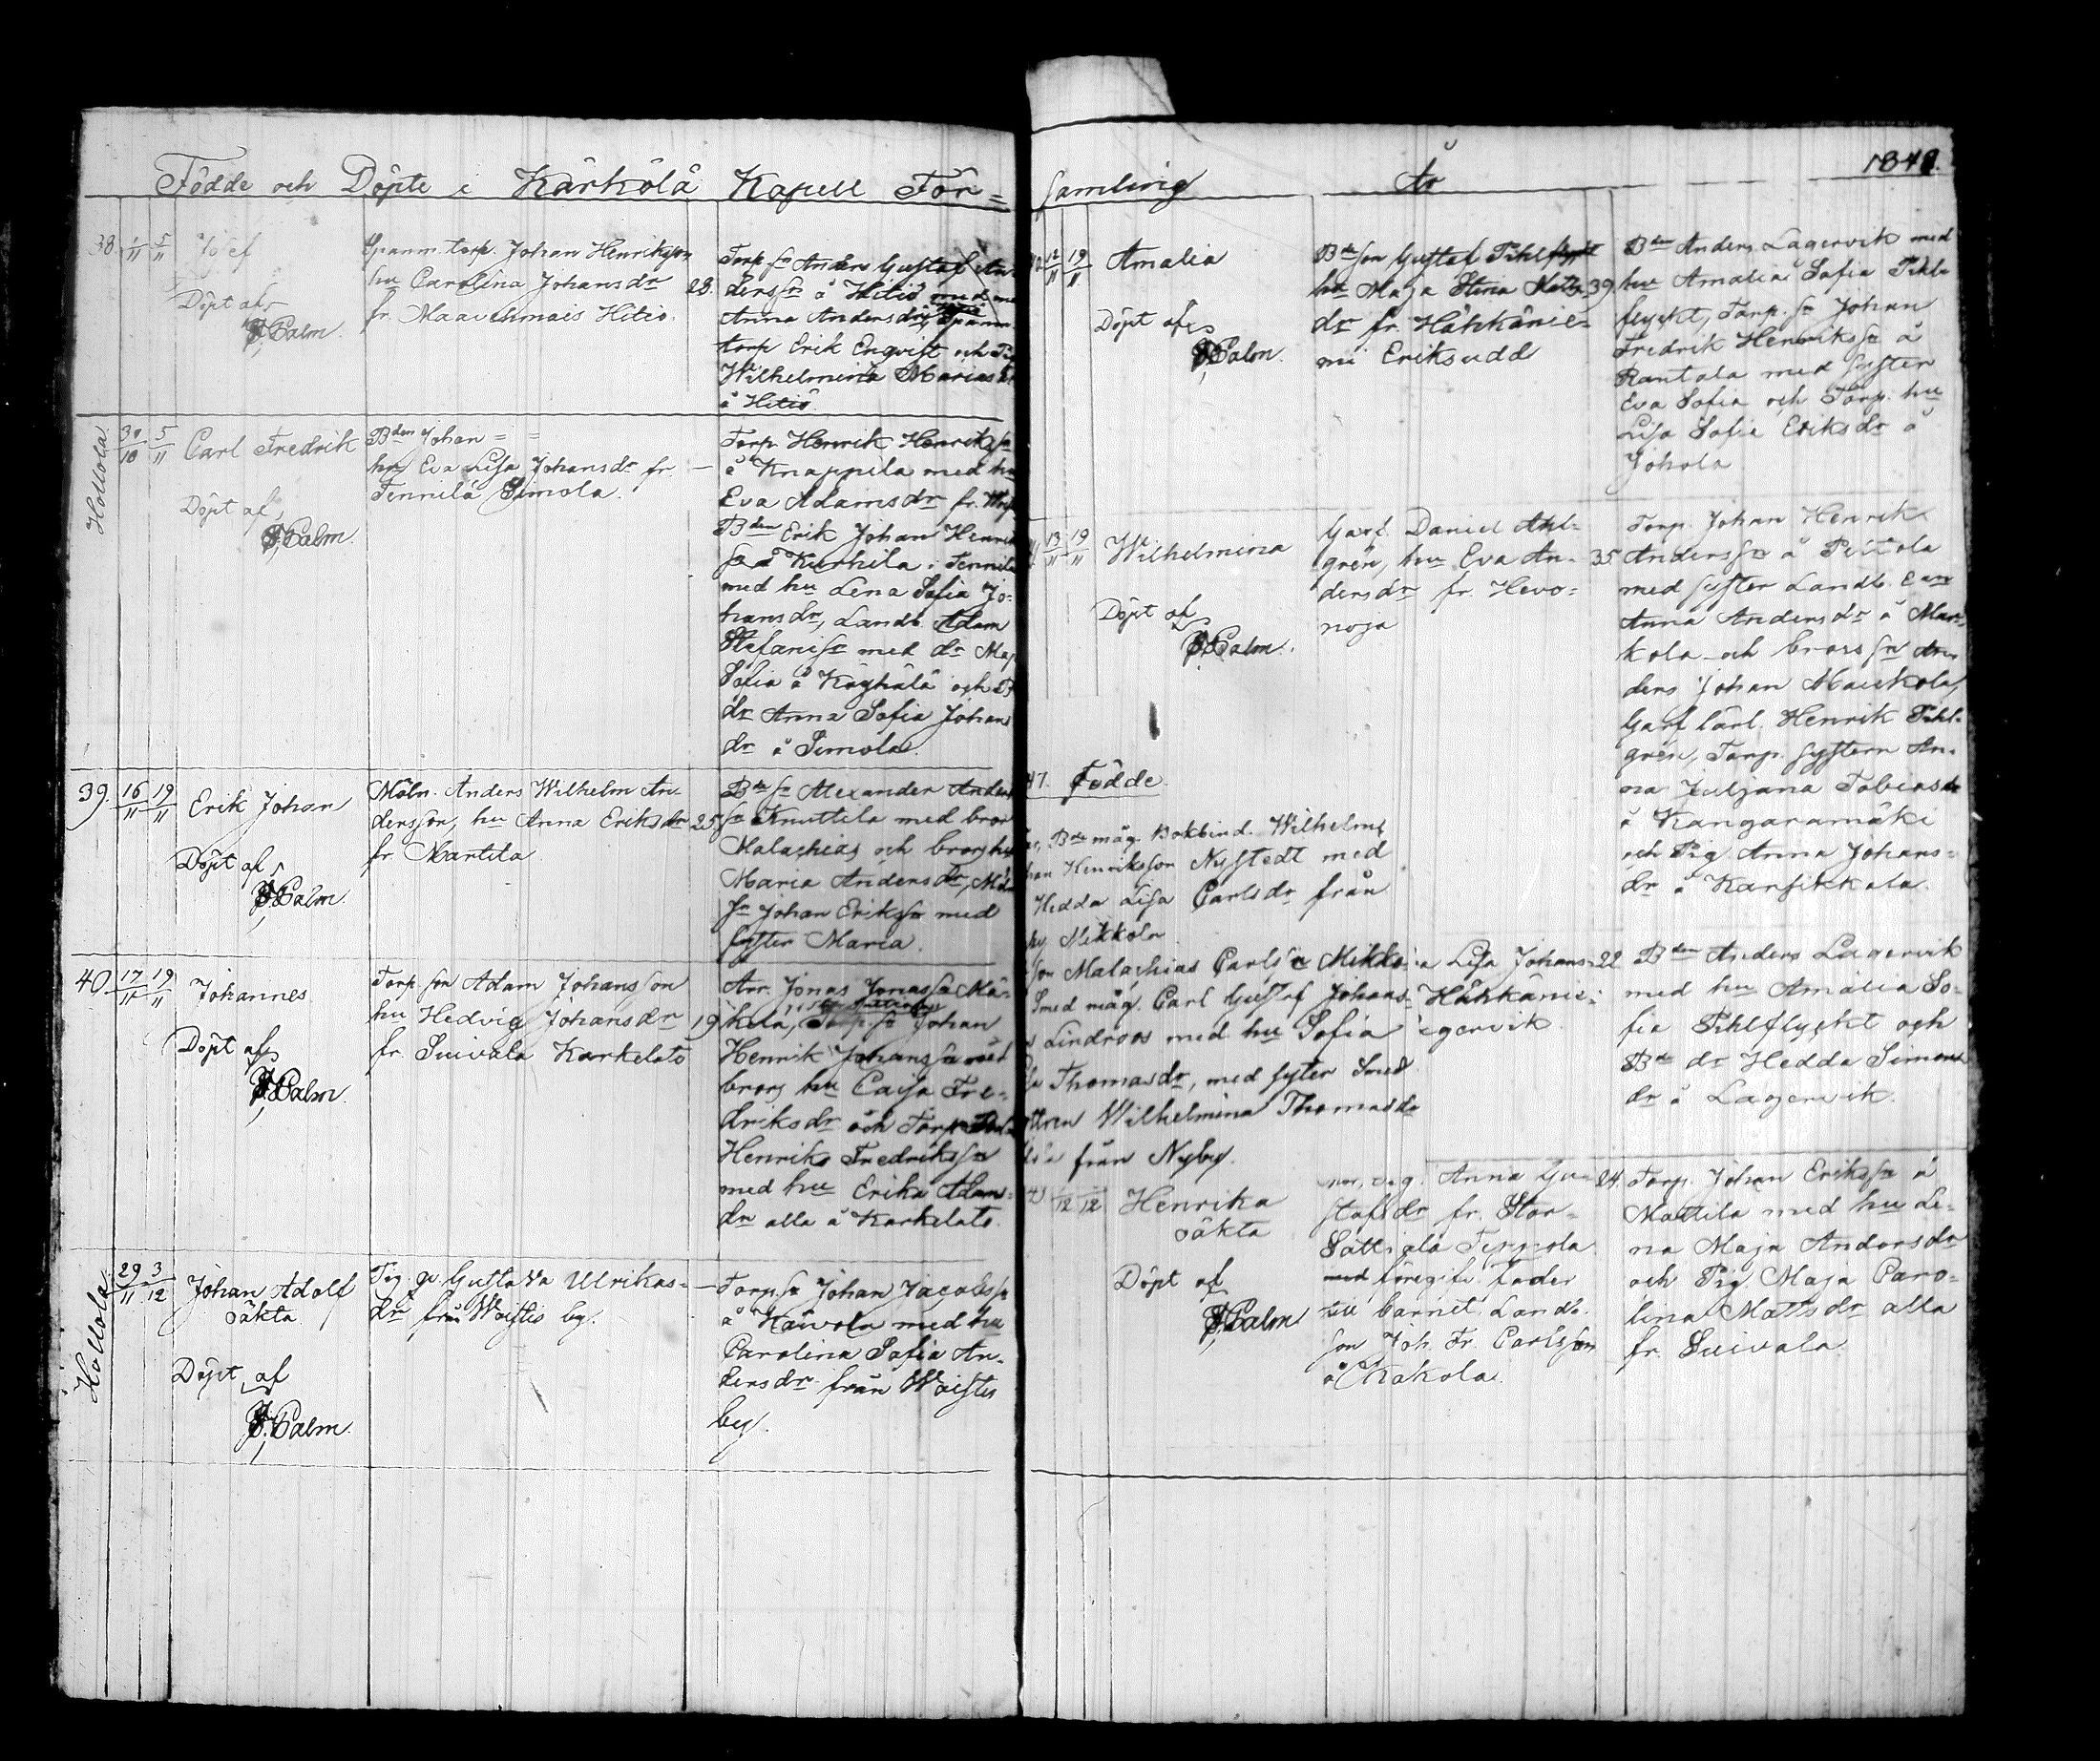 Födde och Döpte i Kärkölä Kapell För=
38. 1/11 5/11 Josef
Döpt af
Palm.
Spanm. torp. Johan Henriksson
hu Carolina Johansdr 28.
fr. Maavehmais Hitiö.
Torp. sn Anders Gustaf An
derssn å Hitiö med
Anna Andersdr,
torp Erik Enqvist och
Wilhelmina Marias
å Hitiö.
Hollola.
30/10 5/11 Carl Fredrik
Döpt af
Palm.
Bden Johan = =
hu Eva Lisa Johansdr fr. —
Tennilä Simola.
Torp. Henrik Henrikssn
å Knappila med hu
Eva Adamsdr fr.
Bden Erik Johan Henrik
sn å Kurkila i Tennilä
med hu Lena Sofia Jo-
hansdr, Landb. Adam
Stefanssn med dr Maj
Sofia å Köyhälä och B
dr Anna Sofia Johans
dr å Simola.
39. 16/11 19/11 Erik Johan
Döpt af
Palm.
Möln. Anders Wilhelm An-
dersson, hu Anna Eriksdr 25
fr. Marttila
Bde sn Alexander Anders
sn Knuttila med bror
Malachias och brors hu
Maria Andersdr,
sn Johan Erikssn med
syster Maria.
40 17/11 19/11 Johannes
Döpt af
Palm.
Torp. son Adam Johansson
hu Hedvig Johansdr 19
fr. Suivala Karkelato
Arr. Jonas Jonassn Mä-
kelä, Johan
Henrik Johanssn med
brors hu Cajsa Fre-
driksdr och Torp.
Henriks Fredrikssn
med hu Erika Adams-
dr alla å Karkelato.
Hollola.
29/11 3/12 Johan Adolf
oäkta.
Döpt af
Palm.
Pig. qv. Gustava Ulrikas- —
dr från Woistis by.
Torp. sn Johan Jacobssn
å Käivola med hu
Carolina Sofia An-
dersdr från Woistis
by.
samling År 1848.
12/11 19/11 Amalia
Döpt af
Palm.
Bde son Gustaf Pihlflyckt
hu Maja Stina Matts- 39
dr fr. Hähkänie-
mi Eriksudd
Bden Anders Lagervik med
hu Amalia Sofia Pihl-
flyckt, Torp. sn Johan
Fredrik Henrikssn å
Rantala med syster
Eva Sofia och Torp. hu
Lisa Sofia Eriksdr å
Johola
13/11 19/11 Wilhelmina
Döpt af
Palm.
Garf. Daniel Ahl-
grén, hu Eva An- 35
dersdr fr. Hevo-
noja
Torp. Johan Henrik
Anderssn å Peltola
med syster Landb. enk
Anna Andersdr å Mar-
kola och brors sn An-
ders Johan Maukola,
Garf. lärl. Henrik Pihl-
grén, Torp. systern An-
na Juljana Tobiasdr
å Kangasmäki
och Pig. Anna Johans-
dr å Karsikkala.
47. Födde.
Bde måg Bokbind. Wilhelm
Henriksson Nystedt med
Hedda Lisa Carlsdr från
Nikkola
son Malachias Carlssn Mikko-
Smed måg. Carl Gustaf Johans-
Lindroos med hu Sofia
Thomasdr, med syster Smed
ttren Wilhelmina Thomasdr
från Nyby.
Lisa Johans- 22
Hähkänie-
Lagervik.
Bden Anders Lagervik
med hu Amalia So-
fia Pihlflyckt och
Bde dr Hedda Simons
dr å Lagervik.
/12 /12 Henrika
oäkta
Döpt af
Palm
Anna Gu- 24.
stafsdr fr. Stor-
Sattiala Teppola
med föregifn. fader
till barnet Landb.
son Joh. Fr. Carlsson
å Kakola.
Torp. Johan Erikssn å
Mattila med hu Le-
na Maja Andersdr
och Pig. Maja Caro-
lina Mattsdr alla
fr. Suivala